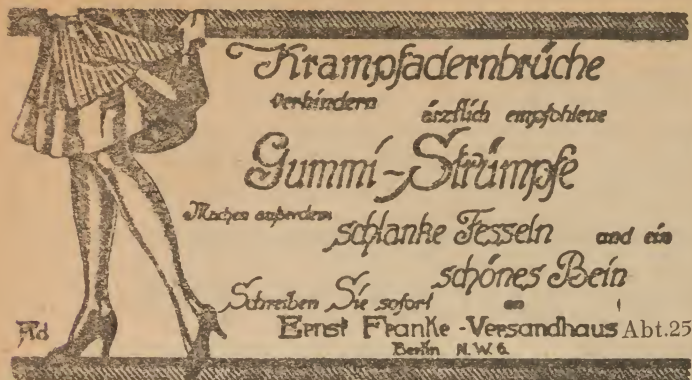 Krampfadernbrüche
verhindern ärztlich empfohlene
Gummi-Strümpfe
Machen außerdem
schlanke Fesseln und ein
schönes Bein
Schreiben Sie sofort an
Ernst Franke-Versandhaus Abt.25
Berlin N.W.6.